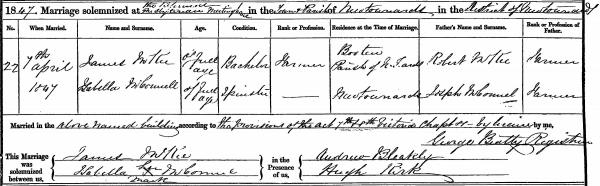 1847. Marriage solemnized at the Reformed Presbyterian Meetinghouse, in the Town & Parish of Newtownards, in the District of Newtownards
No. When Married. Name and Surname. Age. Condition. Rank or Profession. Residence at the Time of Marriage. Father's Name and Surname. Rank or Profession of Father.
22 7th April 1847 James McKee of full age Bachelor Farmer Parish of N.Tards Robert McKee Farmer
Isabella McConnell of full age Spinster Newtownards Joseph McConnel Farmer
Married in the above named building according to the provisions of the act, by licence by me,
George Beatty Registrar
This Marriage was solemnized between us, James McKee
Isabella her x mark McConnel
in the Presence of us, Andrew Bleakely
Hugh Kirk